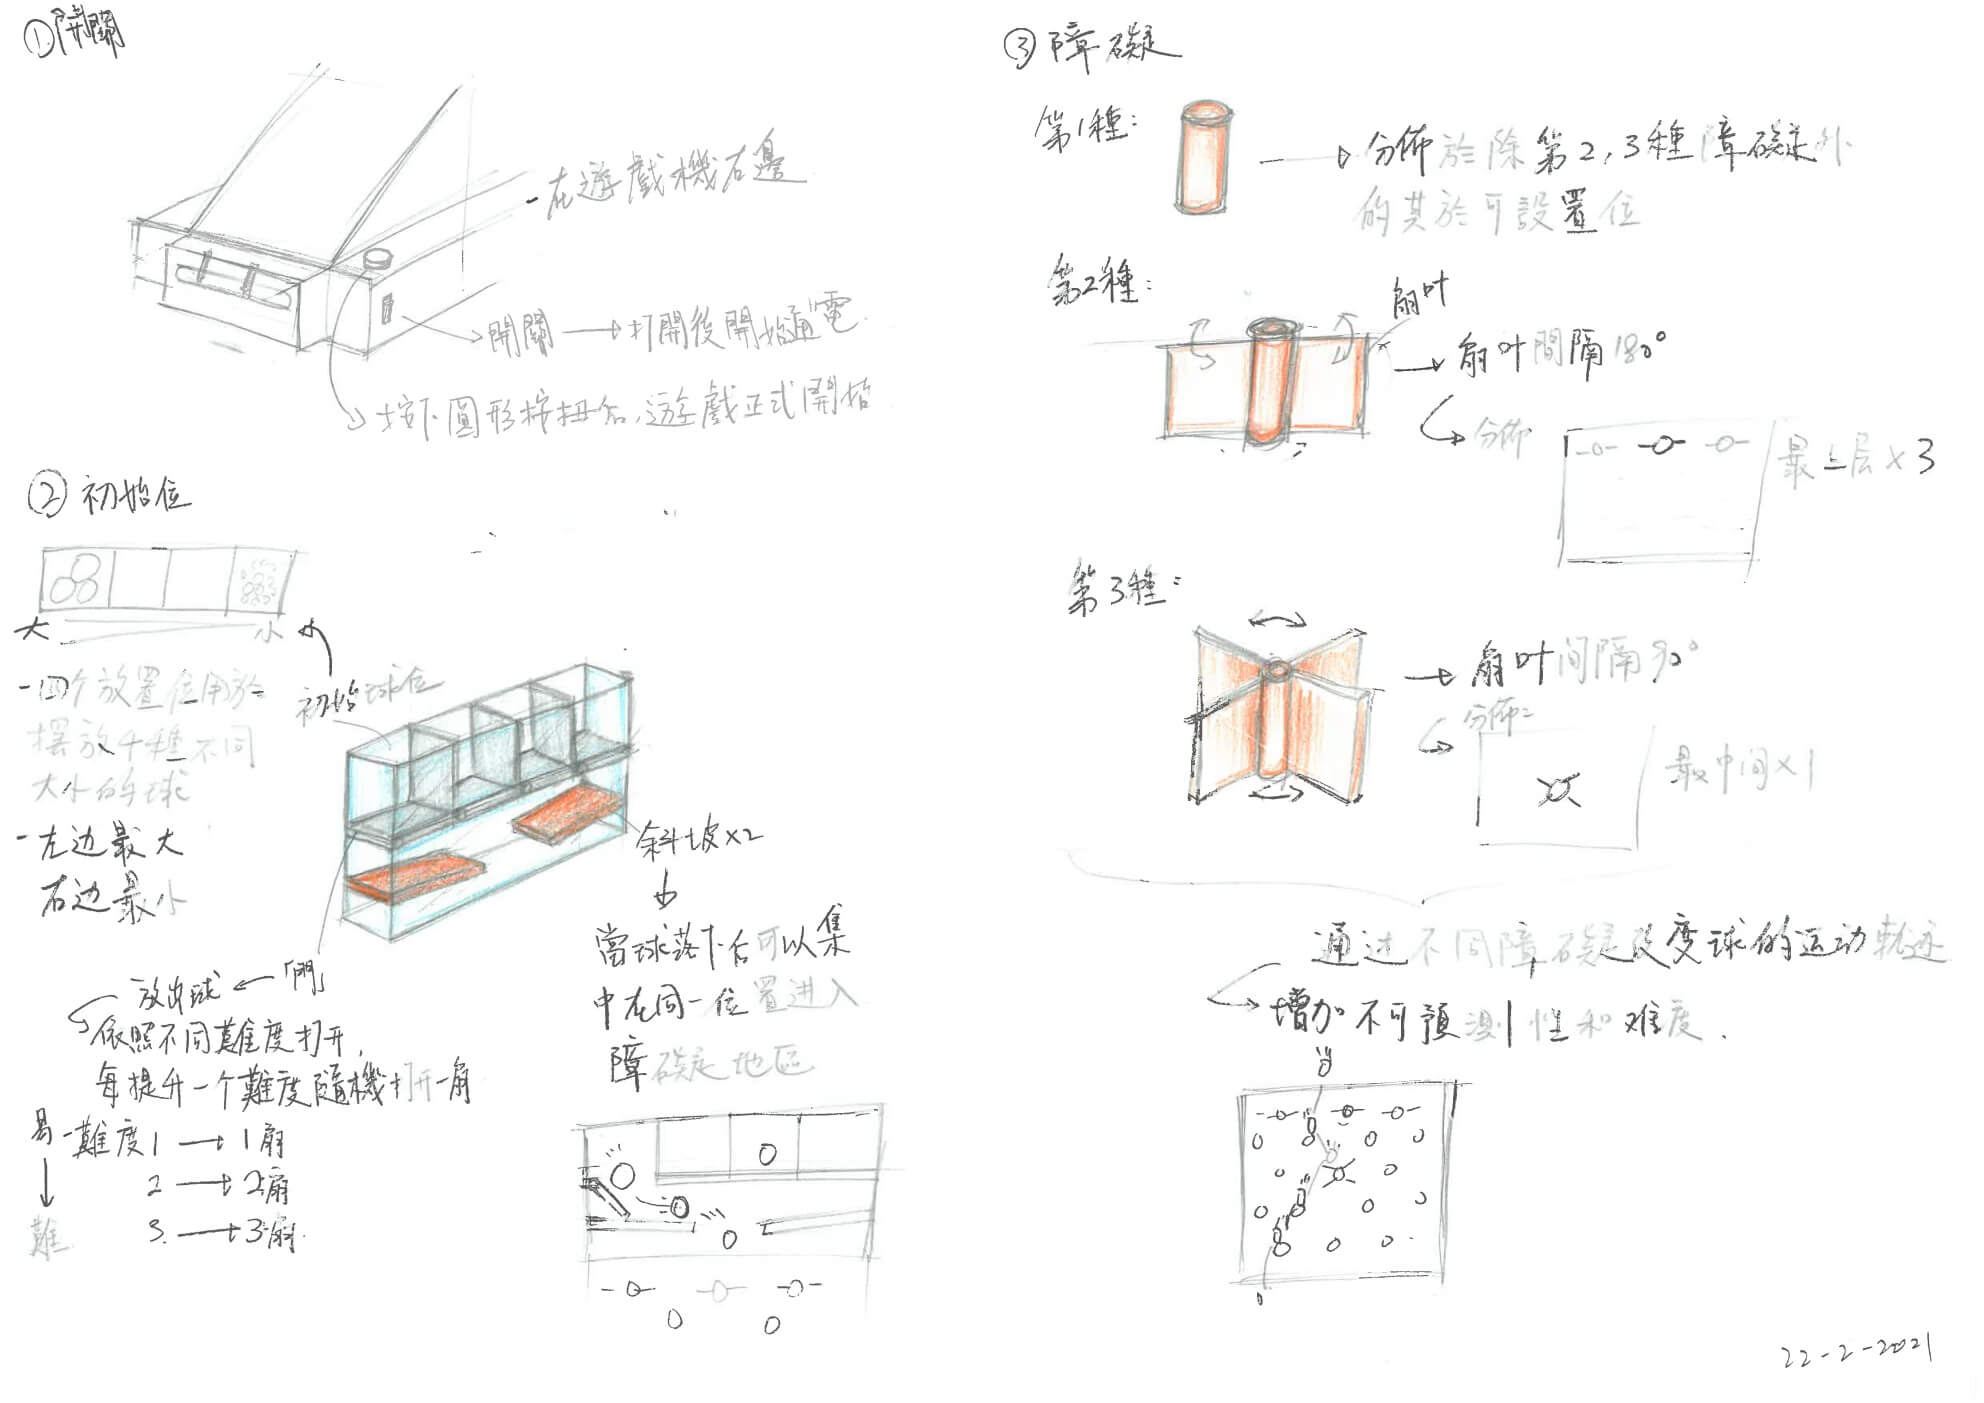 ①開關
-在遊戲機右邊
開關→打開後開始通電.
按下圓形按扭后,遊戲正式開始
②初始位
大 小
初始球位
-四个放置位用於
擺放4種不同
大小的球
-左边最大
右边最小
斜坡×2
當球落下后可以集
中在同一位置進入
障礙地區
放出球←「門」
依照不同難度打开,
每提升一个難度隨機打开一扇
易-難度1→1扇
2→2扇
難 3.→3扇.
③障礙
第1種:
→分佈於除第2,3種障礙外
的其於可設置位
第2種:
扇叶
→扇叶間隔180°
分佈
最上层×3
第3種:
→扇叶间隔90°
分佈:
最中间×1
通过不同障礙改变球的运动轨迹
→增加不可預測性和难度.
22-2-2021